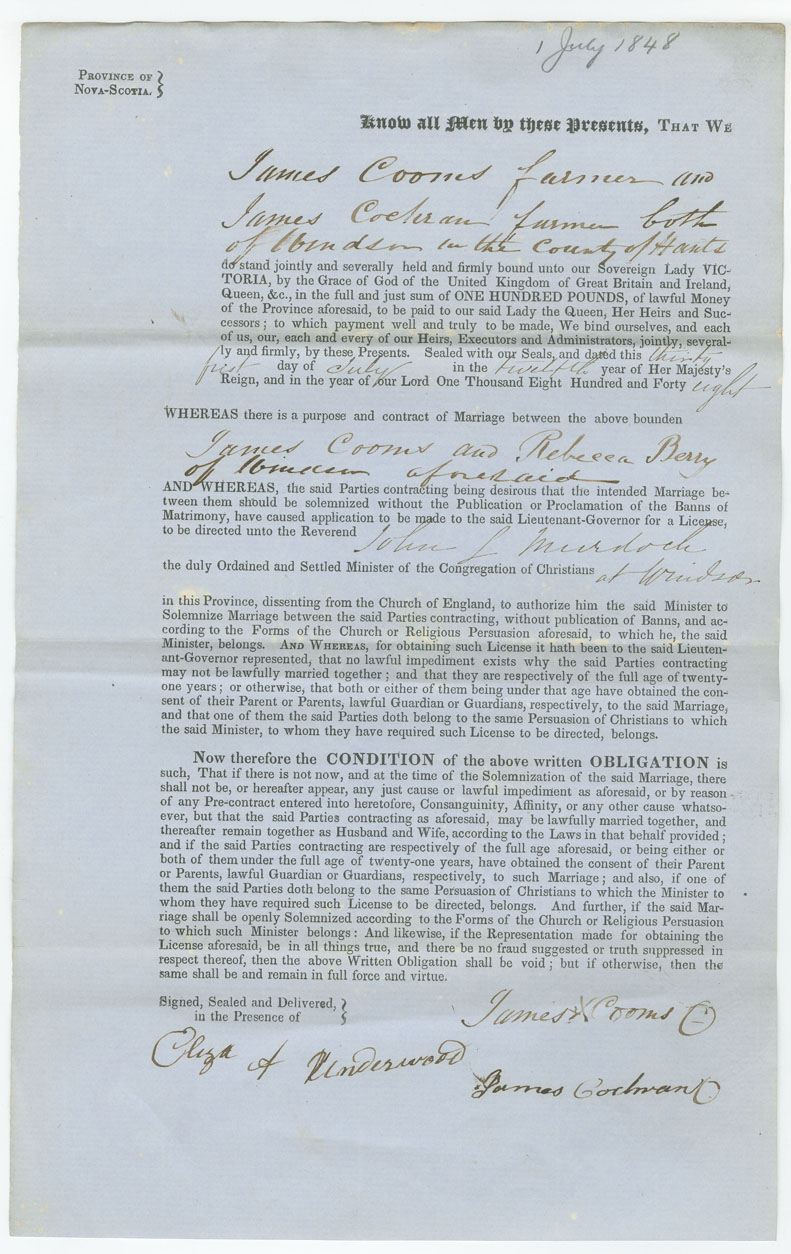 1 July 1848
PROVINCE OF
NOVA-SCOTIA.
Know all Men by these Presents, THAT WE
James Cooms farmer and
James Cochran farmer both
of Windsor in the County of Hants
do stand jointly and severally held and firmly bound unto our Sovereign Lady VIC-
TORIA, by the Grace of God of the United Kingdom of Great Britain and Ireland,
Queen, &c., in the full and just sum of ONE HUNDRED POUNDS, of lawful Money
of the Province aforesaid, to be paid to our said Lady the Queen, Her Heirs and Suc-
cessors; to which payment well and truly to be made, We bind ourselves, and each
of us, our, each and every of our Heirs, Executors and Administrators, jointly, several-
ly and firmly, by these Presents. Sealed with our Seals, and dated this thirty
first day of July in the twelfth year of Her Majesty's
Reign, and in the year of our Lord One Thousand Eight Hundred and Forty eight
WHEREAS there is a purpose and contract of Marriage between the above bounden
James Cooms and Rebecca Berry
of Windsor aforesaid
AND WHEREAS, the said Parties contracting being desirous that the intended Marriage be-
tween them should be solemnized without the Publication or Proclamation of the Banns of
Matrimony, have caused application to be made to the said Lieutenant-Governor for a License,
to be directed unto the Reverend John L Murdoch
the duly Ordained and Settled Minister of the Congregation of Christians at Windsor
in this Province, dissenting from the Church of England, to authorize him the said Minister to
Solemnize Marriage between the said Parties contracting, without publication of Banns, and ac-
cording to the Forms of the Church or Religious Persuasion aforesaid, to which he, the said
Minister, belongs. AND WHEREAS, for obtaining such License it hath been to the said Lieuten-
ant-Governor represented, that no lawful impediment exists why the said Parties contracting
may not be lawfully married together; and that they are respectively of the full age of twenty-
one years; or otherwise, that both or either of them being under that age have obtained the con-
sent of their Parent or Parents, lawful Guardian or Guardians, respectively, to the said Marriage,
and that one of them the said Parties doth belong to the same Persuasion of Christians to which
the said Minister, to whom they have required such License to be directed, belongs.
Now therefore the CONDITION of the above written OBLIGATION is
such, That if there is not now, and at the time of the Solemnization of the said Marriage, there
shall not be, or hereafter appear, any just cause or lawful impediment as aforesaid, or by reason
of any Pre-contract entered into heretofore, Consanguinity, Affinity, or any other cause whatso-
ever, but that the said Parties contracting as aforesaid, may be lawfully married together, and
thereafter remain together as Husband and Wife, according to the Laws in that behalf provided;
and if the said Parties contracting are respectively of the full age aforesaid, or being either or
both of them under the full age of twenty-one years, have obtained the consent of their Parent
or Parents, lawful Guardian or Guardians, respectively, to such Marriage; and also, if one of
them the said Parties doth belong to the same Persuasion of Christians to which the Minister to
whom they have required such License to be directed, belongs. And further, if the said Mar-
riage shall be openly Solemnized according to the Forms of the Church or Religious Persuasion
to which such Minister belongs: And likewise, if the Representation made for obtaining the
License aforesaid, be in all things true, and there be no fraud suggested or truth suppressed in
respect thereof, then the above Written Obligation shall be void; but if otherwise, then the
same shall be and remain in full force and virtue.
Signed, Sealed and Delivered,
in the Presence of
James X Cooms
Eliza A Underwood
James Cochran